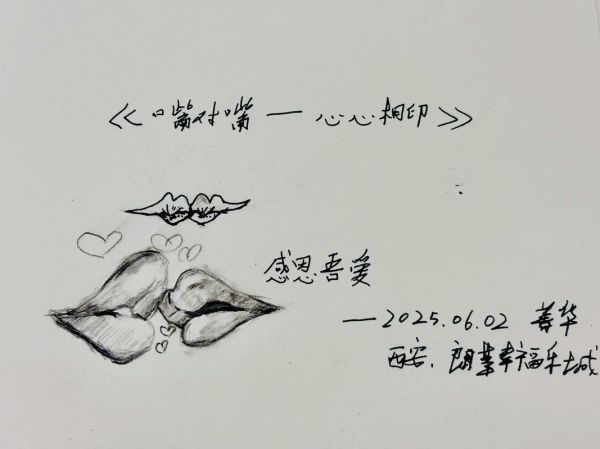 《嘴对嘴一心心相印》
感恩吾爱
—2025.06.02 菁华
西安.朗基幸福乐城